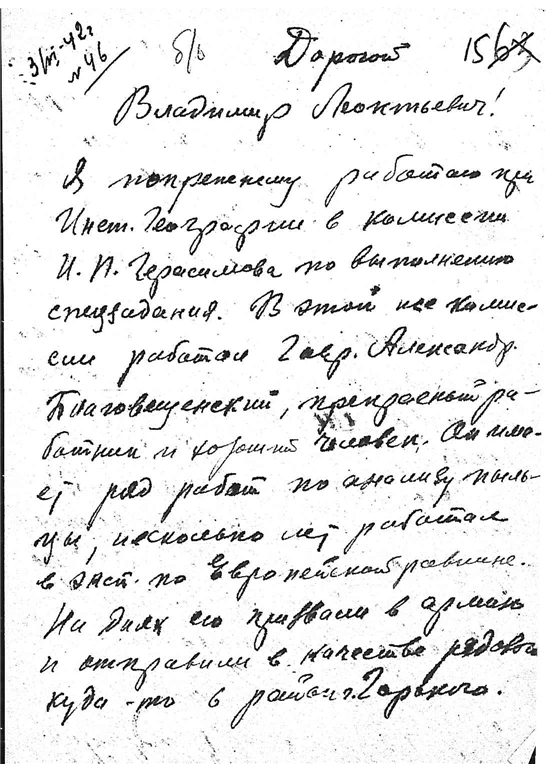 3/VI-42г
№46
б/о
Дорогой 156
Владимир Леонтьевич!
Я попрежнему работаю при
Инст. Географии в комиссии
И. П. Герасимова по выполнению
спецзадания. В этой же комис-
сии работал Гавр. Александр.
Благовещенский, прекрасный ра-
ботник и хороший человек. Он име-
ет ряд работ по анализу пыль-
цы, несколько лет работал
в эксп. по Европейской равнине.
На днях его призвали в армию
и отправили в качестве рядового
куда-то в район г. Горького.